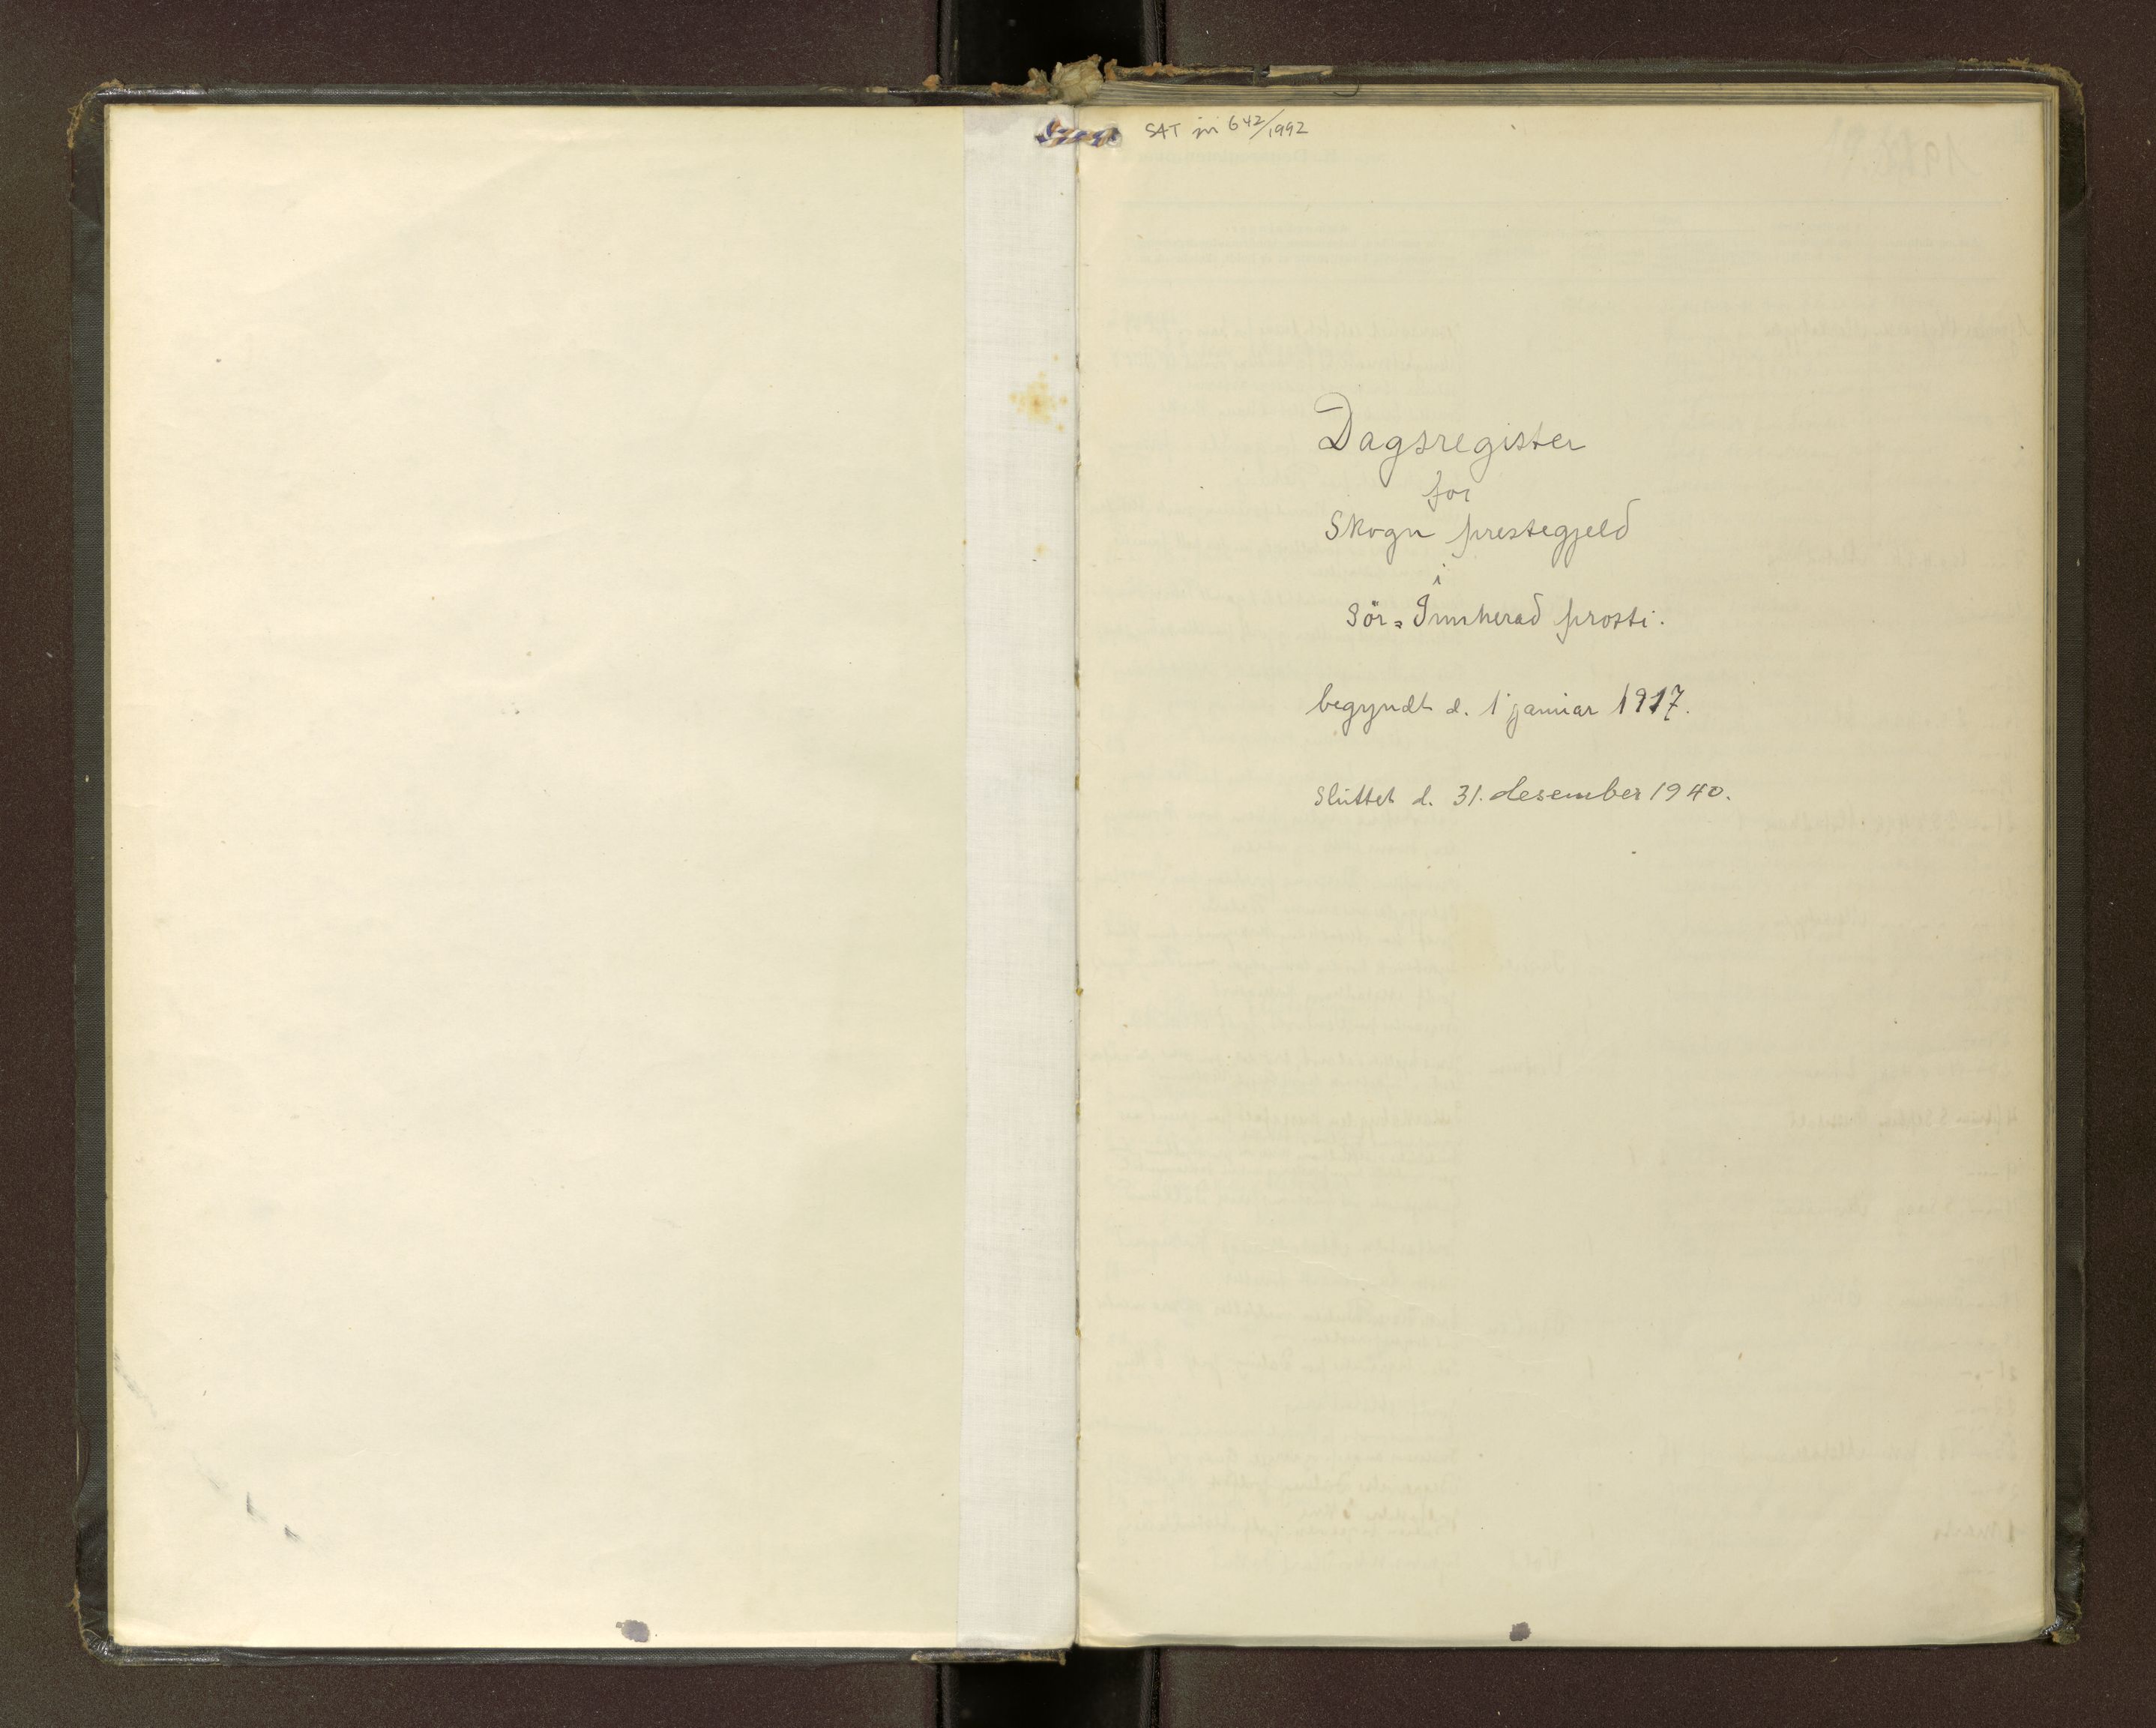 SAT jnr 642/1992
Dagsregister
for
Skogn prestegjeld
i
Sör-Innherad prosti.
begyndt d. 1 januar 1917.
Sluttet d. 31. desember 1940.